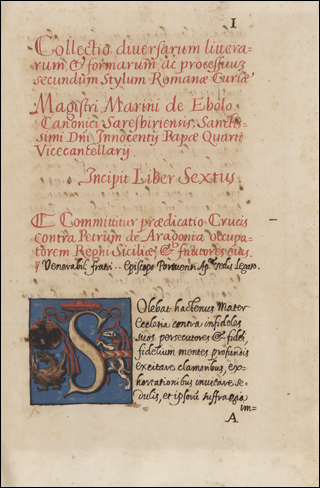 1
Collectio diversarum littera-
rum, & formarum ac processuum
secundum Stylum Romanæ Curiæ
Magistri Marini de Ebolo
Canonici Saresbiriensis, Sanctis-
simi Dñi Innocentij Papæ Quarti
Vicecancellarij
Incipit Liber Sextus.
Committitur prædicatio Crucis
contra Petrum de Aragonia occupa-
torem Regni Siciliæ, & fautores eius.
Venerabili fratri .. Episcopo Portuensi Ap. Sedis Legato.
Solebat hactenus Mater
Ecclesia contra infideles
suos persecutores & fidei,
fidelium mentes profundis
excitare clamoribus, ex-
hortationibus invitare se-
dulis, et ipsorũ suffragia
im=
A